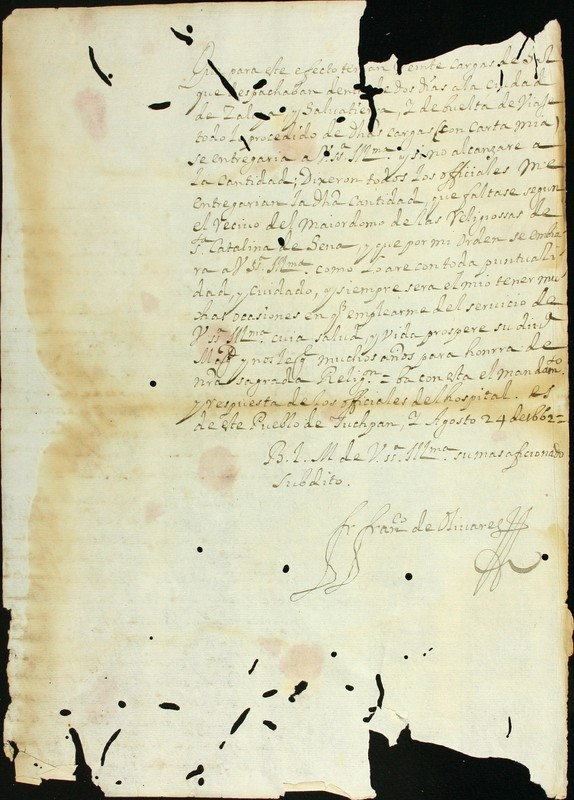 Que para este efecto tenian veinte cargas de Sal
que despachaban dentro de dos dias a la ciudad
de Zalaya y Salvatierra, I de buelta de Viaje
todo lo procedido de dhas cargas (con carta mia)
se entregaria a V.ssª Illmª. y si no alcançare a
la cantidad; Dixeron todos los officiales me
entregarian la dha cantidad, que faltase segun
el Recivo del Maiordomo de las Religiossas de
Sª Catalina de Sena, y que por mi orden se embia
ra a V.ssª Illmª. como lo are con toda puntuali
dad, y cuidado, y siempre sera el mio tener mu
chas ocasiones en q emplearme del servicio de
V.ssª Illmª cuia salud, y vida prospere su divª
Magd y nos le gᵉ muchos años para honrra de
nrª sagrada Religⁿ = ba con esta el mandamto
y respuesta de los officiales del hospital. es
de este Pueblo de Tuchpan, I Agosto 24 de 1662=
B. L. M de V.ssª Illmª. su mas aficionado
Subdito.
fr franco de Olivares